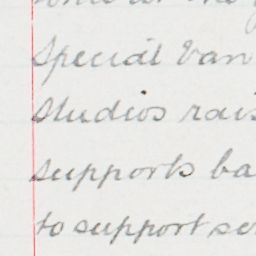 Special Van
Studios rais
supports ba
to support se